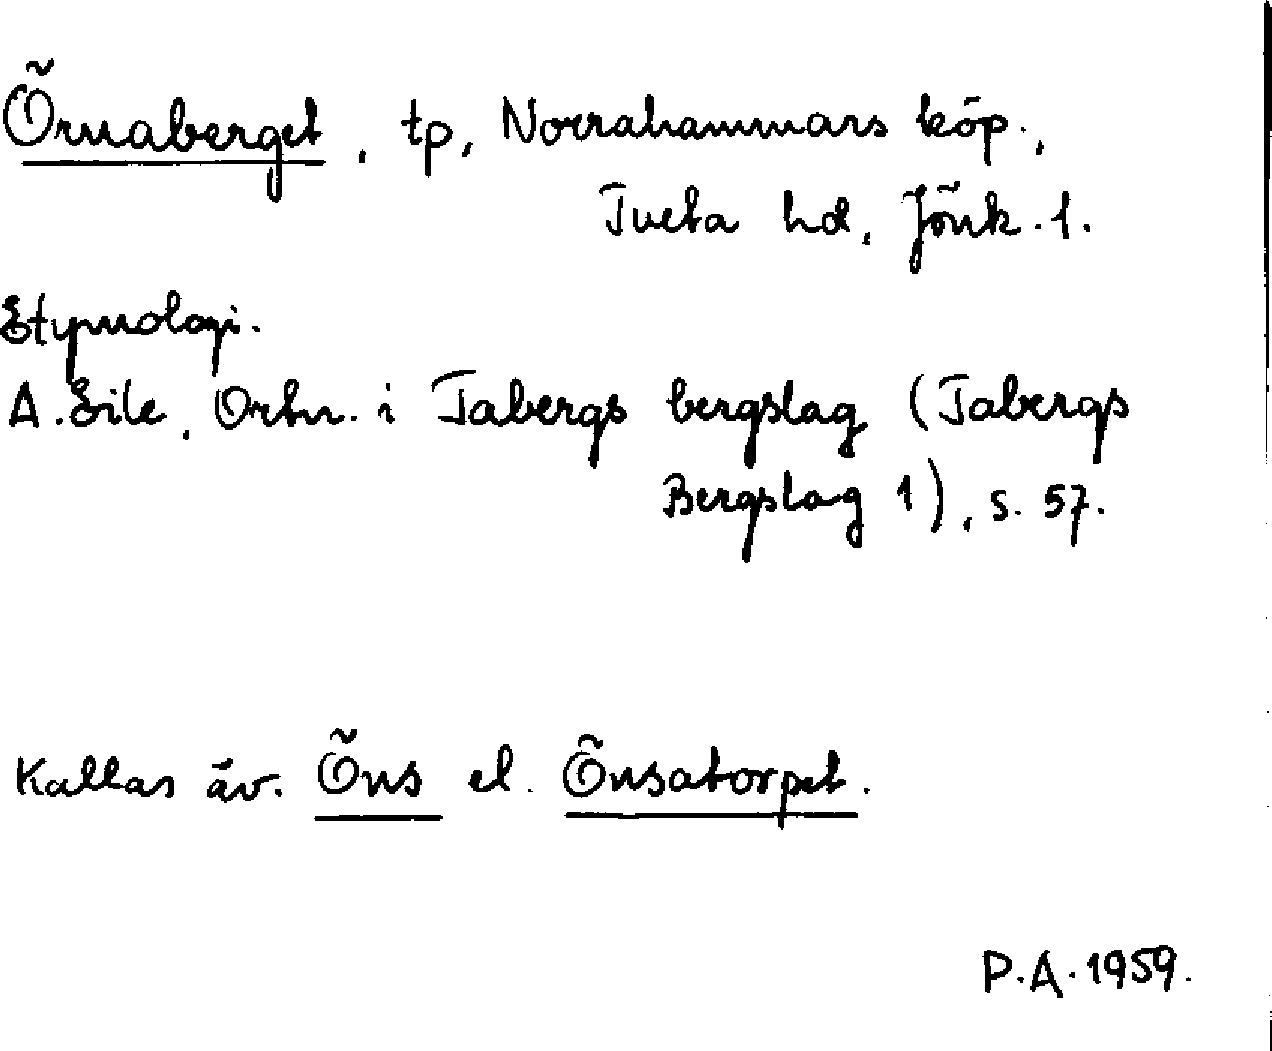 Örnaberget, tp, Norrahammars köp.,
Tveta hd, Jönk. l.
Etymologi.
A. Eile, Ortn. i Tabergs bergslag (Tabergs
Bergslag 1), s. 57.
Kallas äv. Öns el. Önsatorpet.
P.A. 1959.